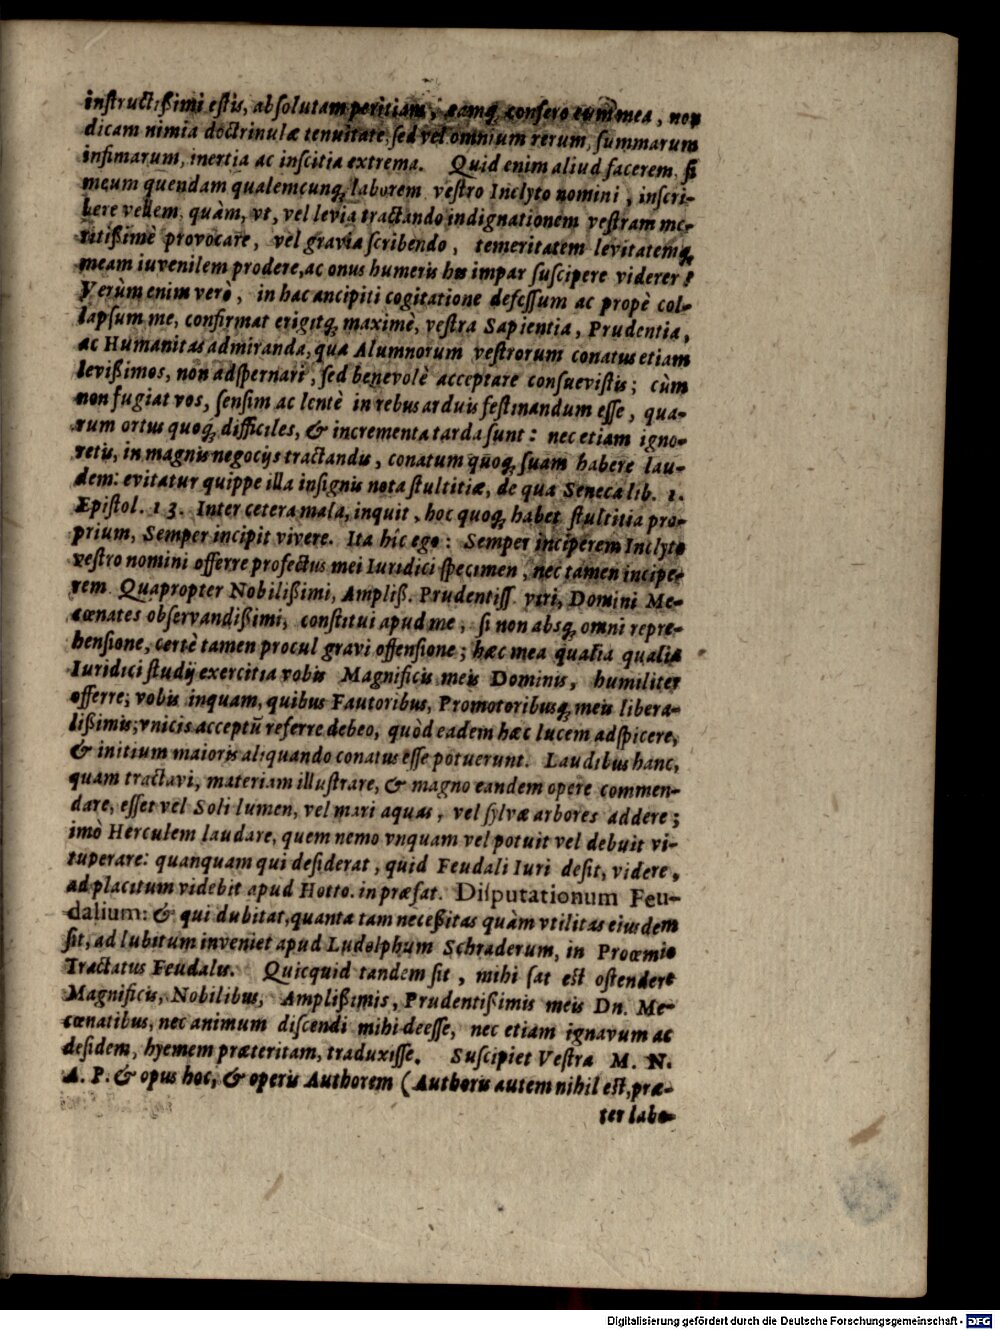 instructißimi estis, absolutam peritiam, eamq́; confero cum mea, non
dicam nimia doctrinulæ tenuitate, sed vel omnium rerum, summarum
infimarum, inertia ac inscitia extrema. Quid enim aliud facerem, si
meum quendam qualemcunq; laborem vestro Inclyto nomini, inscri-
bere vellem, quàm, vt, vel levia tractando indignationem vestram me-
ritißimè provocare, vel gravia scribendo, temeritatem levitatemq;
meam iuvenilem prodere, ac onus humeris his impar suscipere viderer?
Verùm enim verò, in hac ancipiti cogitatione defessum ac propè col-
lapsum me, confirmat erigitq; maximè, vestra Sapientia, Prudentia,
ac Humanitas admiranda, qua Alumnorum vestrorum conatus etiam
levißimos, non adspernari, sed benevolè acceptare consuevistis; cùm
non fugiat vos, sensim ac lentè in rebus arduis festinandum esse, qua-
rum ortus quoq; difficiles, & incrementa tarda sunt: nec etiam igno-
retis, in magnis negocijs tractandis, conatum quoq; suam habere lau-
dem: evitatur quippe illa insignis nota stultitiæ, de qua Seneca lib. 1.
Epistol. 13. Inter cetera mala, inquit, hoc quoq; habet stultitia pro-
prium, Semper incipit vivere. Ita hîc ego: Semper inciperem Inclyto
vestro nomini offerre profectus mei Iuridici specimen, nec tamen incipe-
rem. Quapropter Nobilißimi, Ampliß. Prudentiss. viri, Domini Me-
cœnates observandißimi, constitui apud me, si non absq; omni repre-
hensione, certè tamen procul gravi offensione; hæc mea qualia qualia
Iuridici studij exercitia vobis Magnificis meis Dominis, humiliter
offerre; vobis inquam, quibus Fautoribus, Promotoribusq; meis libera-
lißimis; vnicis acceptũ referre debeo, quòd eadem hæc lucem adspicere,
& initium maioris aliquando conatus esse potuerunt. Laudibus hanc,
quam tractavi, materiam illustrare, & magno eandem opere commen-
dare, esset vel Soli lumen, vel mari aquas, vel sylvæ arbores addere;
imò Herculem laudare, quem nemo vnquam vel potuit vel debuit vi-
tuperare: quanquam qui desiderat, quid Feudali Iuri desit, videre,
ad placitum videbit apud Hotto. in præfat. Disputationum Feu-
dalium: & qui dubitat, quanta tam neceßitas quàm vtilitas eiusdem
sit, ad lubitum inveniet apud Ludolphum Schraderum, in Proœmio
Tractatus Feudalis. Quicquid tandem sit, mihi sat est ostendere
Magnificis, Nobilibus, Amplißimis, Prudentißimis meis Dn. Me-
cœnatibus, nec animum discendi mihi deesse, nec etiam ignavum ac
desidem, hyemem præteritam, traduxisse. Suscipiet Vestra M. N.
A. P. & opus hoc, & operis Authorem (Authoris autem nihil est, præ-
ter labo-
Digitalisierung gefördert durch die Deutsche Forschungsgemeinschaft - DFG